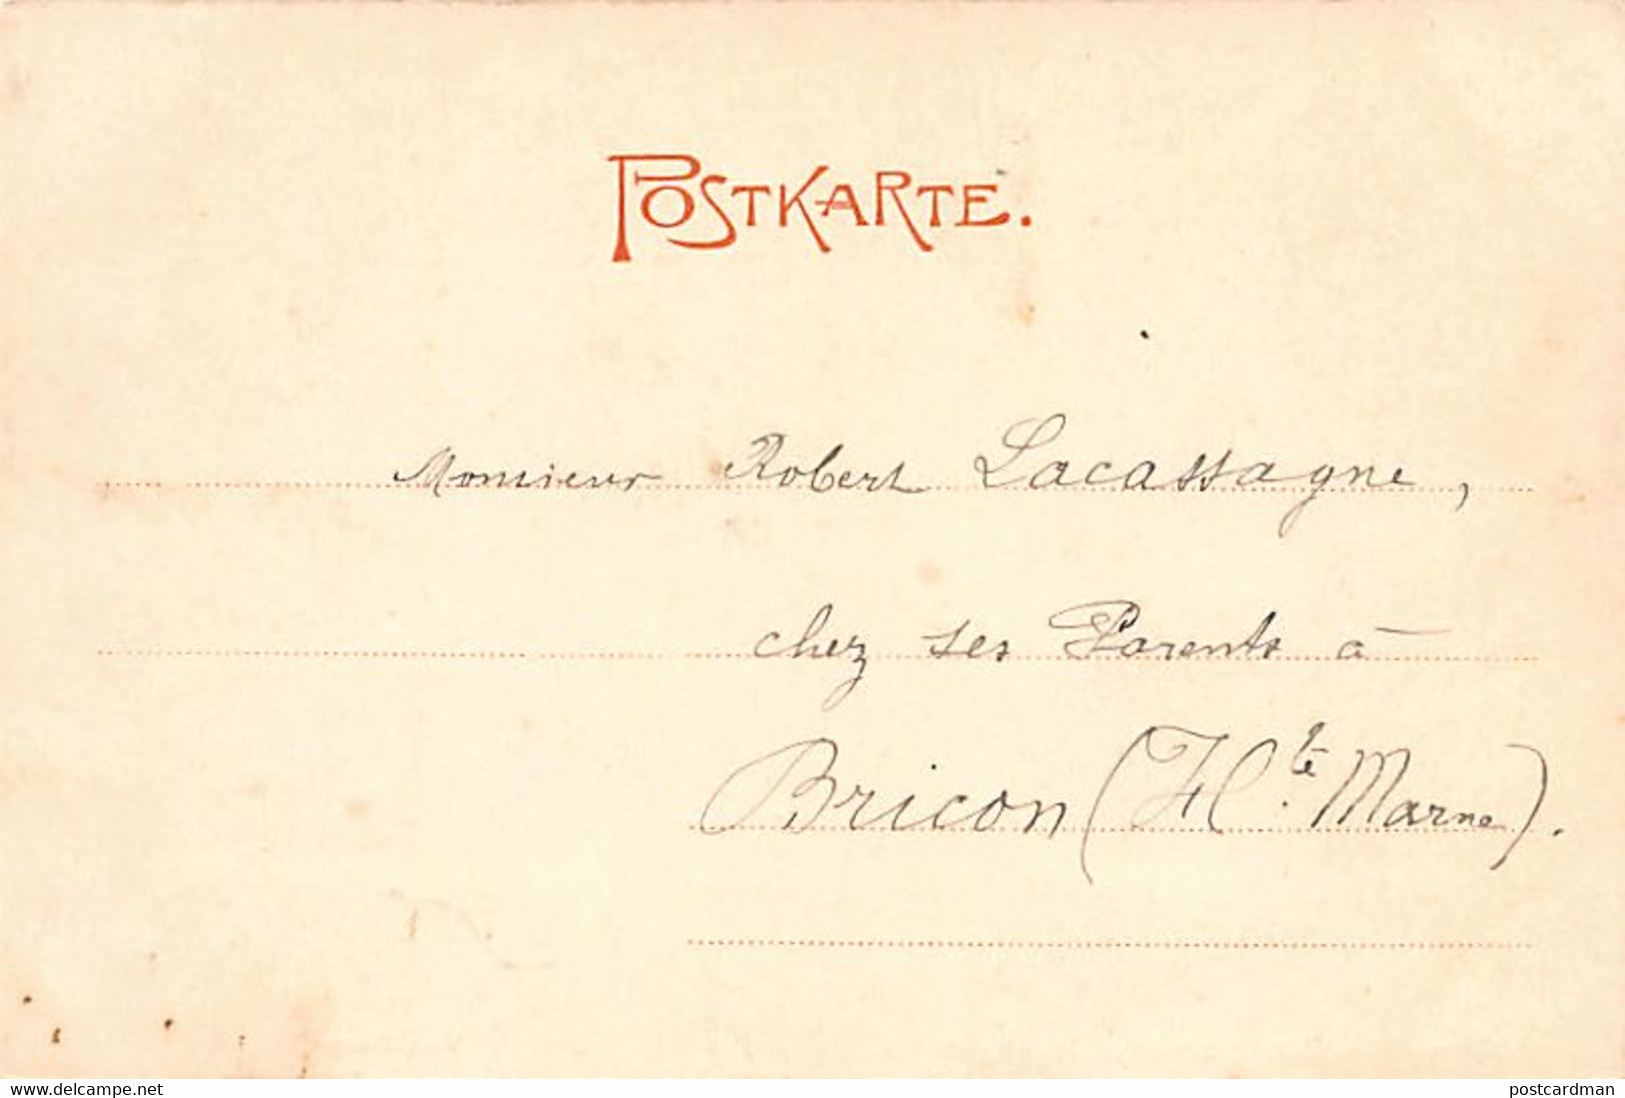 POSTKARTE.
Monsieur Robert Lacassagne,
chez ses Parents à
Bricon (Hte Marne).
www.delcampe.net
postcardman